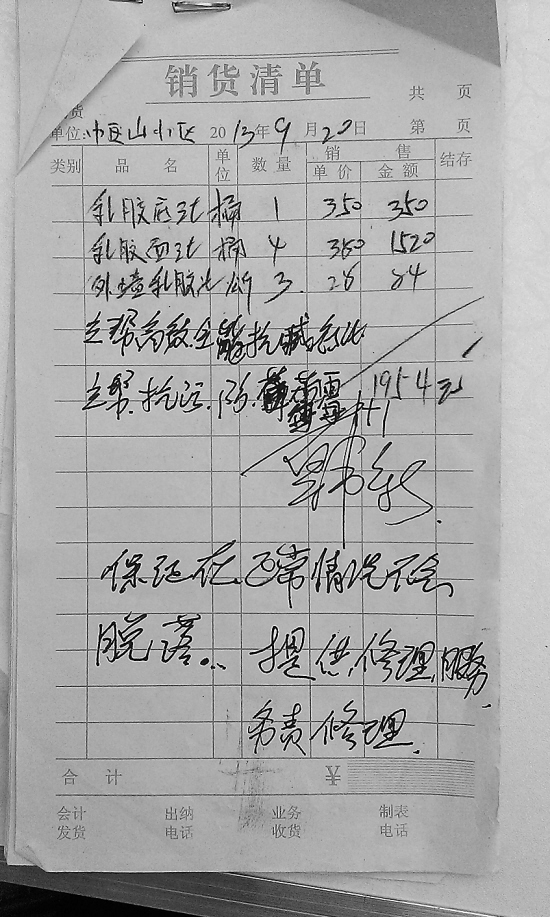 销货清单
共 页
货
单位: 山小区 2013年9月20日 第 页
类别 品名 单位 数量 销售 结存
单价 金额
乳胶底 桶 1 350 350
乳胶面 桶 4 380 1520
外墙乳胶 3 28 84
立帮高效全能抗碱
立帮 抗污 防 霉 1954元
保证在正常情况不会
脱落。 提供修理服务
负责修理.
合计 ¥
会计 出纳 业务 制表
发货 电话 收货 电话